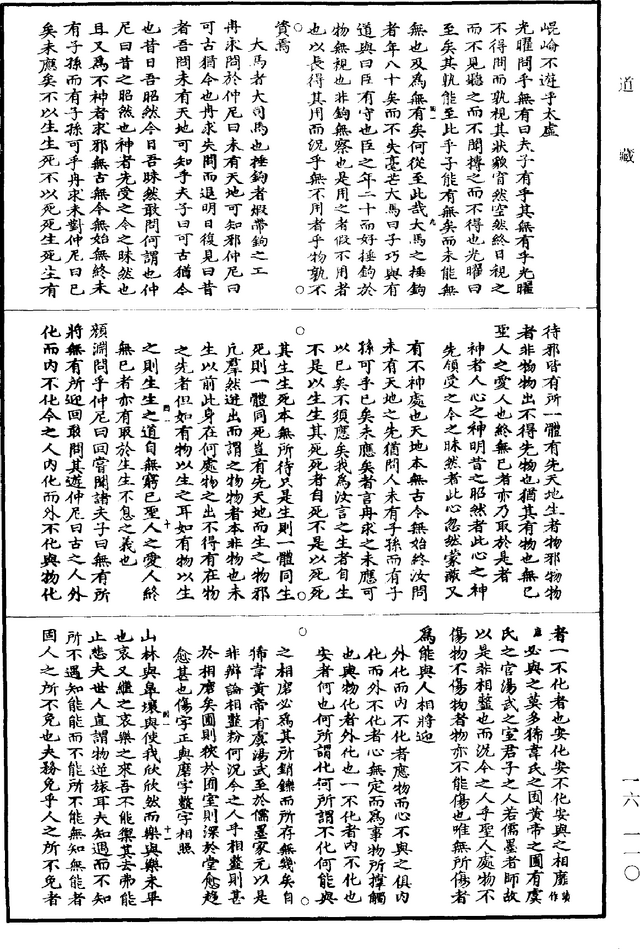 道藏
崐崘不遊乎太虛
光曜問乎無有曰夫子有乎其無有乎光曜
不得問而孰視其狀貌窅然空然終日視之
而不見聽之而不聞搏之而不得也光曜曰
至矣其孰能至此乎予能有無矣而未能無
無也及為無有矣何從至此哉大馬之捶鉤
者年八十矣而不失豪芒大馬曰子巧與有
道與曰臣有守也臣之年二十而好捶鉤於
物無視也非鉤無察也是用之者假不用者
也以長得其用而況乎無不用者乎物孰不
資焉
大馬者大司馬也捶鉤者煅帶鉤之工
冉求問於仲尼曰未有天地可知邪仲尼曰
可古猶今也冉求失問而退明日復見曰昔
者吾問未有天地可知乎夫子曰可古猶今
也昔日吾昭然今日吾昧然敢問何謂也仲
尼曰昔之昭然也神者先受之今之昧然也
且又為不神者求邪無古無今無始無終未
有子孫而有子孫可乎冉求未對仲尼曰已
矣未應矣不以生生死不以死死生死生有
待邪皆有所一體有先天地生者物邪物物
者非物物出不得先物也猶其有物也無已
聖人之愛人也終無已者亦乃取於是者
神者人心之神明昔之昭然者此心之神
先領受之今之昧然者此心忽然蒙蔽又
有不神處也天地本無古今無始終汝問
未有天地之先猶問人未有子孫而有子
孫可乎已矣未應矣者言冉求之未應可
以已矣不須應矣我為汝言之生者自生
不是以生生其死死者自死不是以死死
其生生死本無所待只是生則一體同生
死則一體同死豈有先天地而生之物邪
凡羣然迸出而謂之物物者本非物也未
生以前此身在何處物之出不得有在物
之先者但如有物以生之耳如有物以生
之則生生之道自無窮已聖人之愛人終
無已者亦有取於生生不息之義也
顏淵問乎仲尼曰回嘗聞諸夫子曰無有所
將無有所迎回敢問其遊仲尼曰古之人外
化而內不化今之人內化而外不化與物化
者一不化者也安化安不化安與之相靡
必與之莫多狶韋氏之囿黃帝之圃有虞
氏之宮湯武之室君子之人若儒墨者師故
以是非相𩐎也而況今之人乎聖人處物不
傷物不傷物者物亦不能傷也唯無所傷者
為能與人相將迎
外化而內不化者應物而心不與之俱內
化而外不化者心無定而為事物所撑觸
也與物化者外化也一不化者內不化也
安者何也何所謂化何所謂不化何能與
之相磨必為其所銷鑠而所存無幾矣自
狶韋黃帝有虞湯武至於儒墨家元以是
非辯論相𩐎粉何況今之人乎相𩐎則甚
於相磨矣圃則狹於囿室則深於堂愈趨
愈甚也傷字正與磨字𩐎字相照
山林與皋壤與使我欣欣然而樂與樂未畢
也哀又繼之哀樂之來吾不能禦其去弗能
止悲夫世人直謂物逆旅耳夫知遇而不知
所不遇知能能而不能所不能無知無能者
固人之所不免也夫務免乎人之所不免者
一六 一一〇